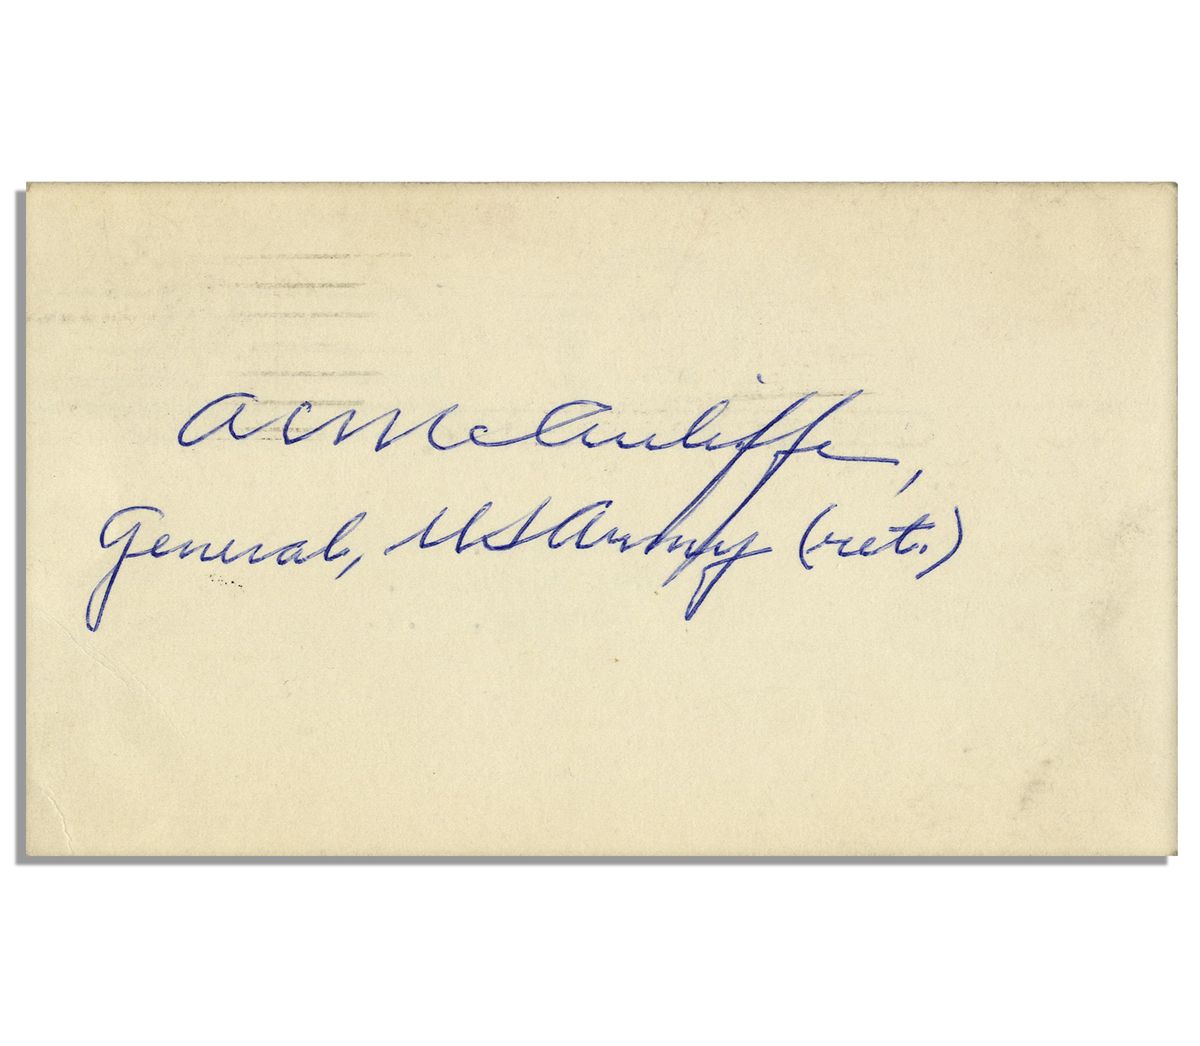 A C McAuliffe,
General, US Army (ret.)